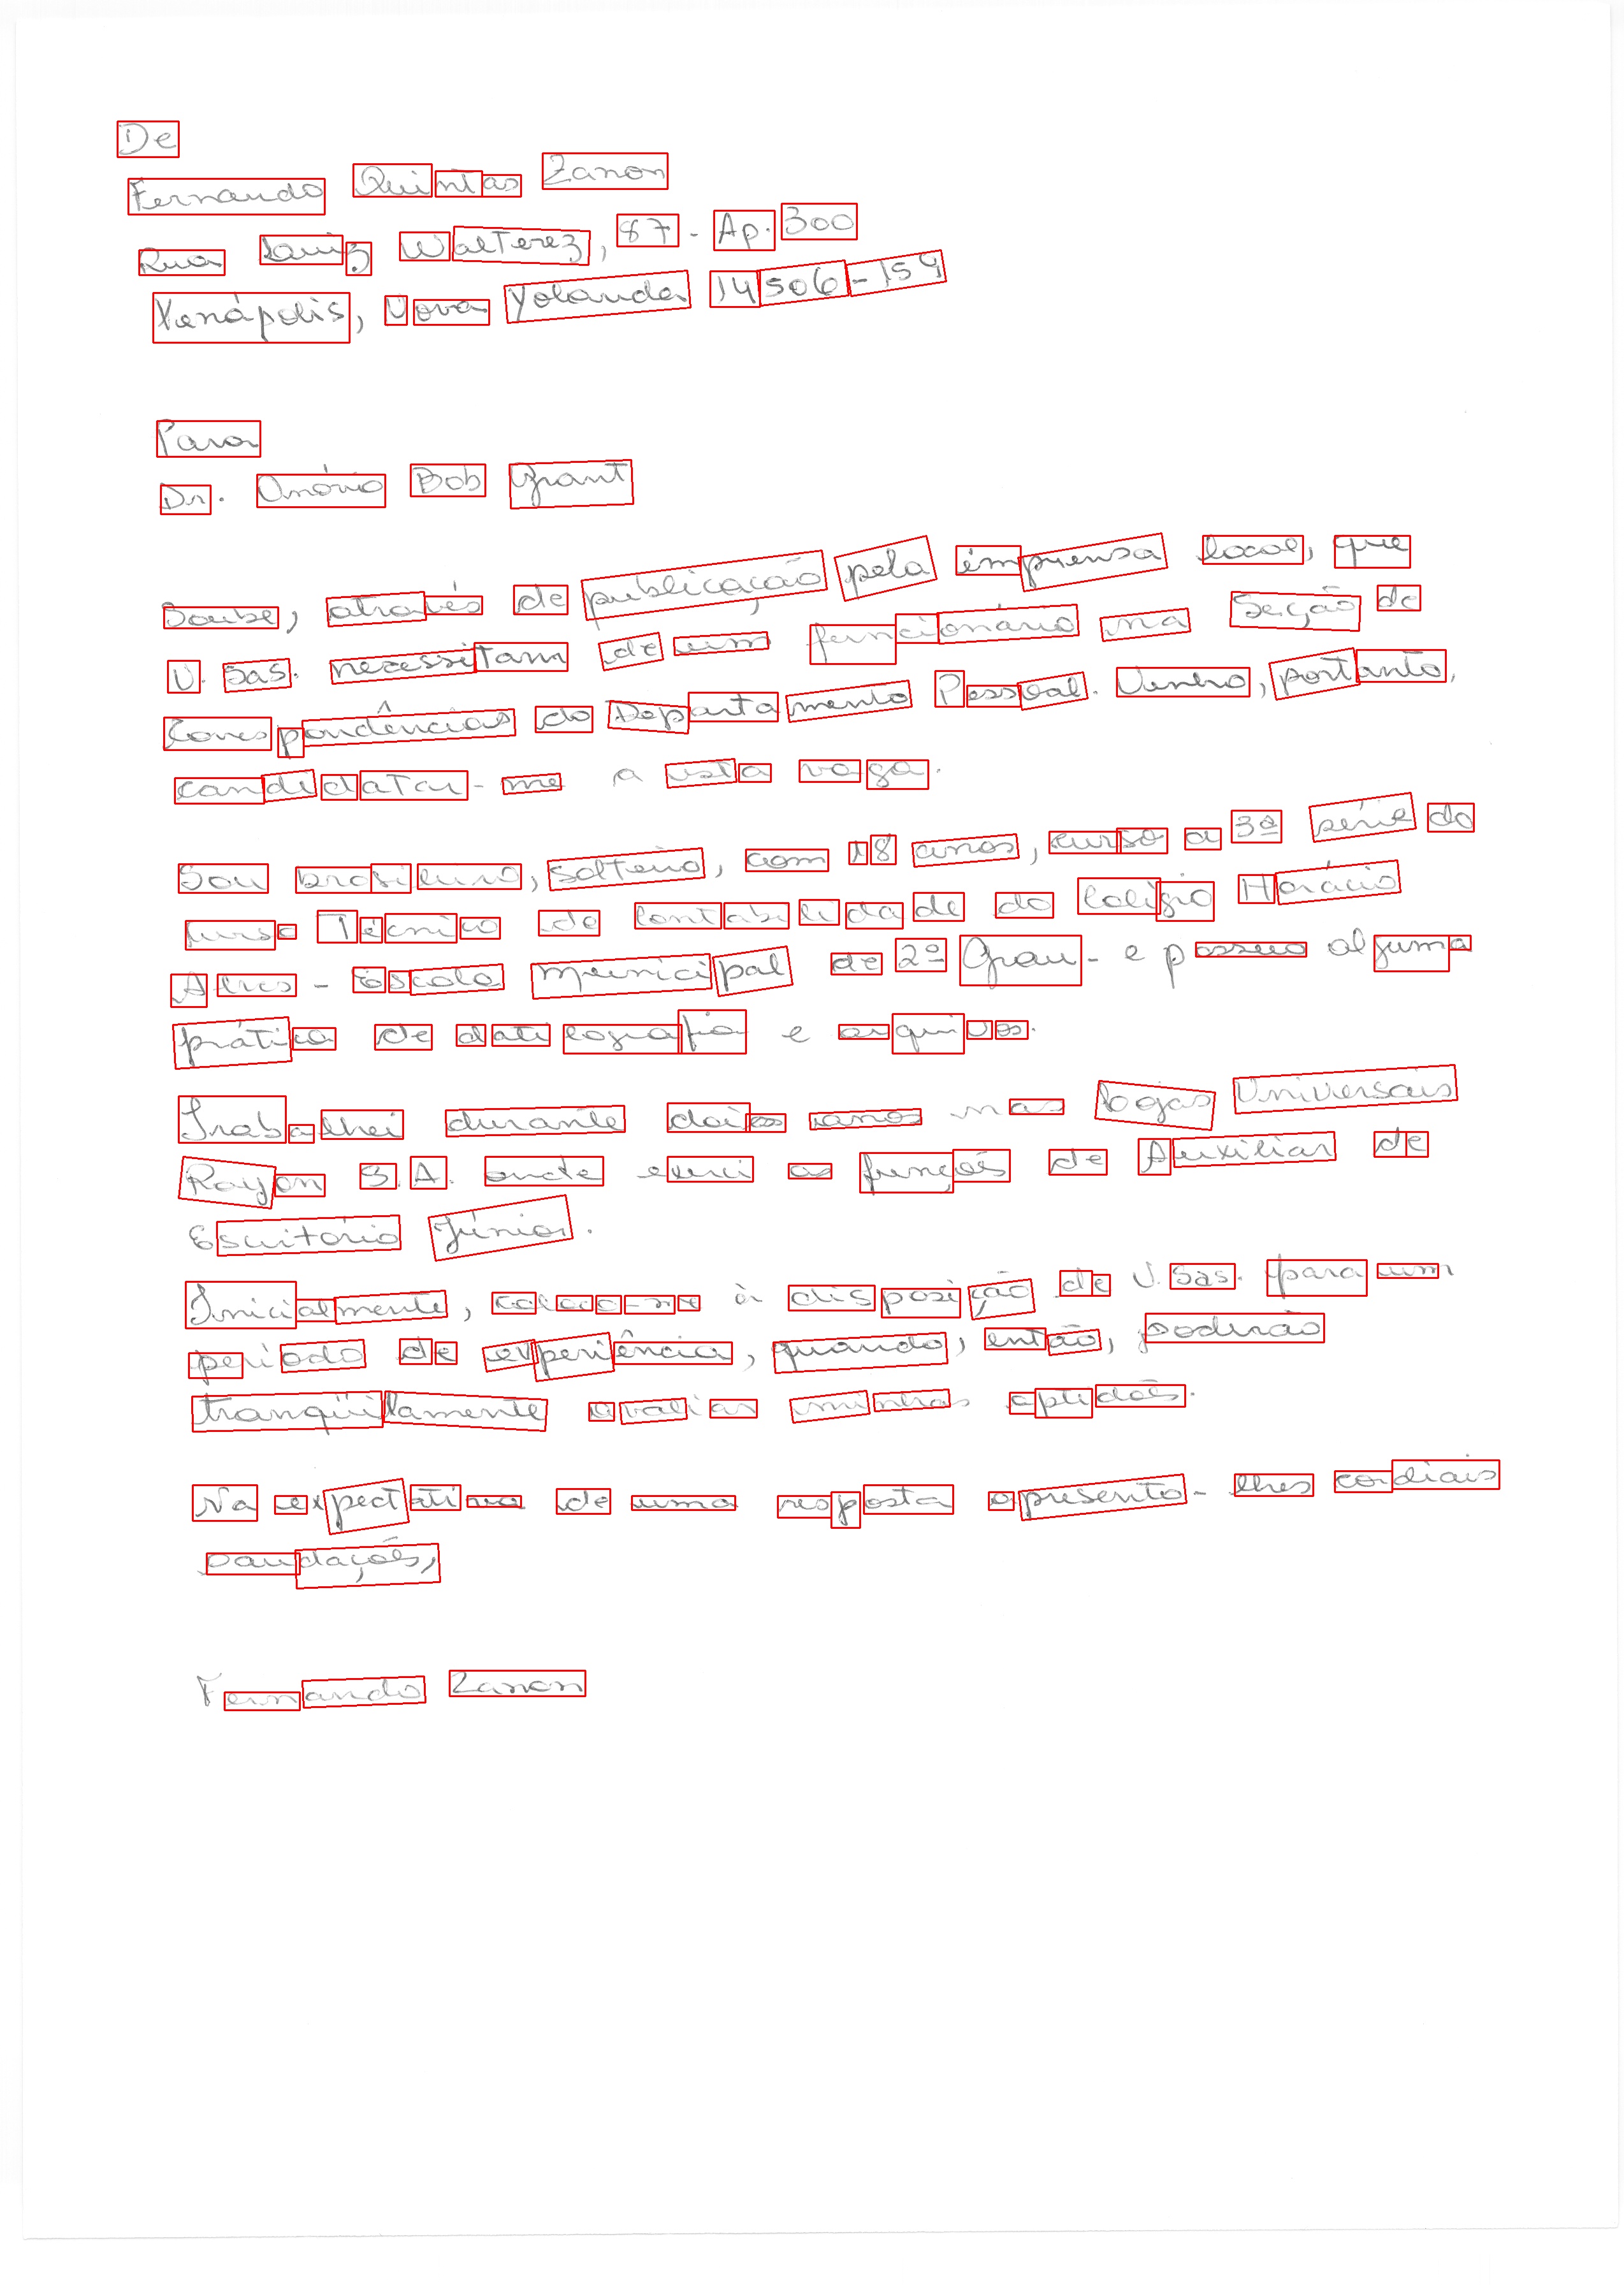 De
Fernando Quintas Zanon
Rua Luiz Walterez, 87 - Ap. 300
Xenápolis, Nova Yolanda 14506-159
Para
Dr. Onório Bob Grant
Soube, através de publicação pela imprensa local, que
V. Sas. necessitam de um funcionário na Seção de
Correspondências do Departamento Pessoal. Venho, portanto,
candidatar-me a esta vaga.
Sou brasileiro, solteiro, com 18 anos, curso a 3ª série do
Curso Técnico de Contabilidade do Colégio Horácio
Alves - Escola Municipal de 2º Grau - e possuo alguma
prática de datilografia e arquivos.
Trabalhei durante dois anos nas Lojas Universais
Rayon S.A. onde exerci as funções de Auxiliar de
Escritório Júnior.
Inicialmente, coloco-me à disposição de V. Sas. para um
período de experiência, quando, então, poderão
tranqüilamente avaliar minhas aptidões.
Na expectativa de uma resposta apresento-lhes cordiais
saudações,
Fernando Zanon